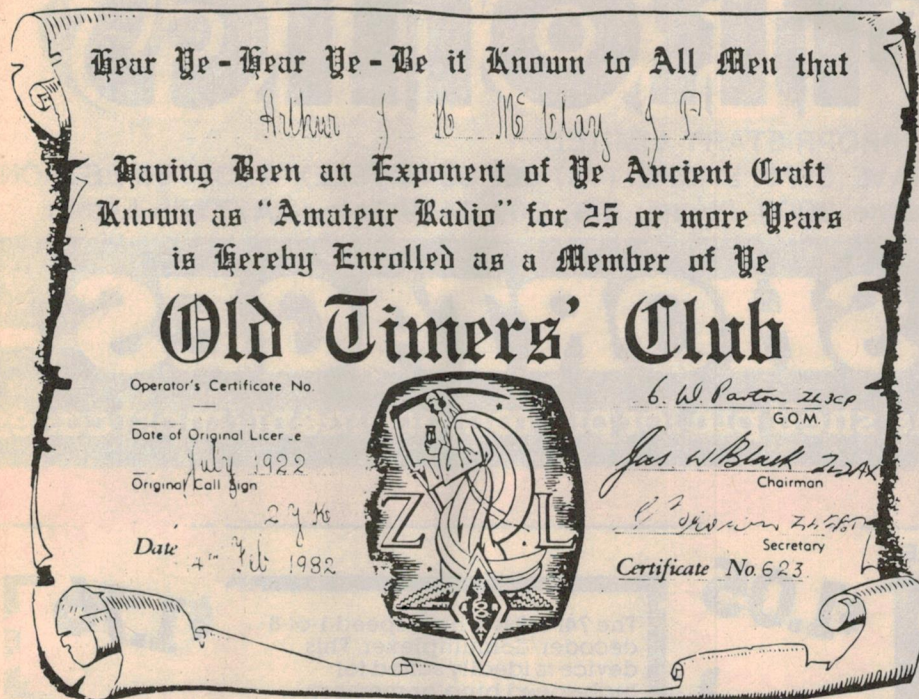 Hear Ye - Hear Ye - Be it Known to All Men that
Arthur J H McClay J P
Having Been an Exponent of Ye Ancient Craft
Known as "Amateur Radio" for 25 or more Years
is Hereby Enrolled as a Member of Ye
Old Timers' Club
Operator's Certificate No.
Date of Original License
July 1922
Original Call Sign
Date 4th Feb 1982
Z L
ZL3CP
G.O.M.
Jas W Black ZL2AX
Chairman
Secretary
Certificate No. 623